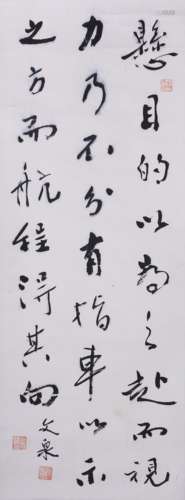 懸目的以為之赴而視
力乃不分有指車以示
之方而航程得其向
文泉